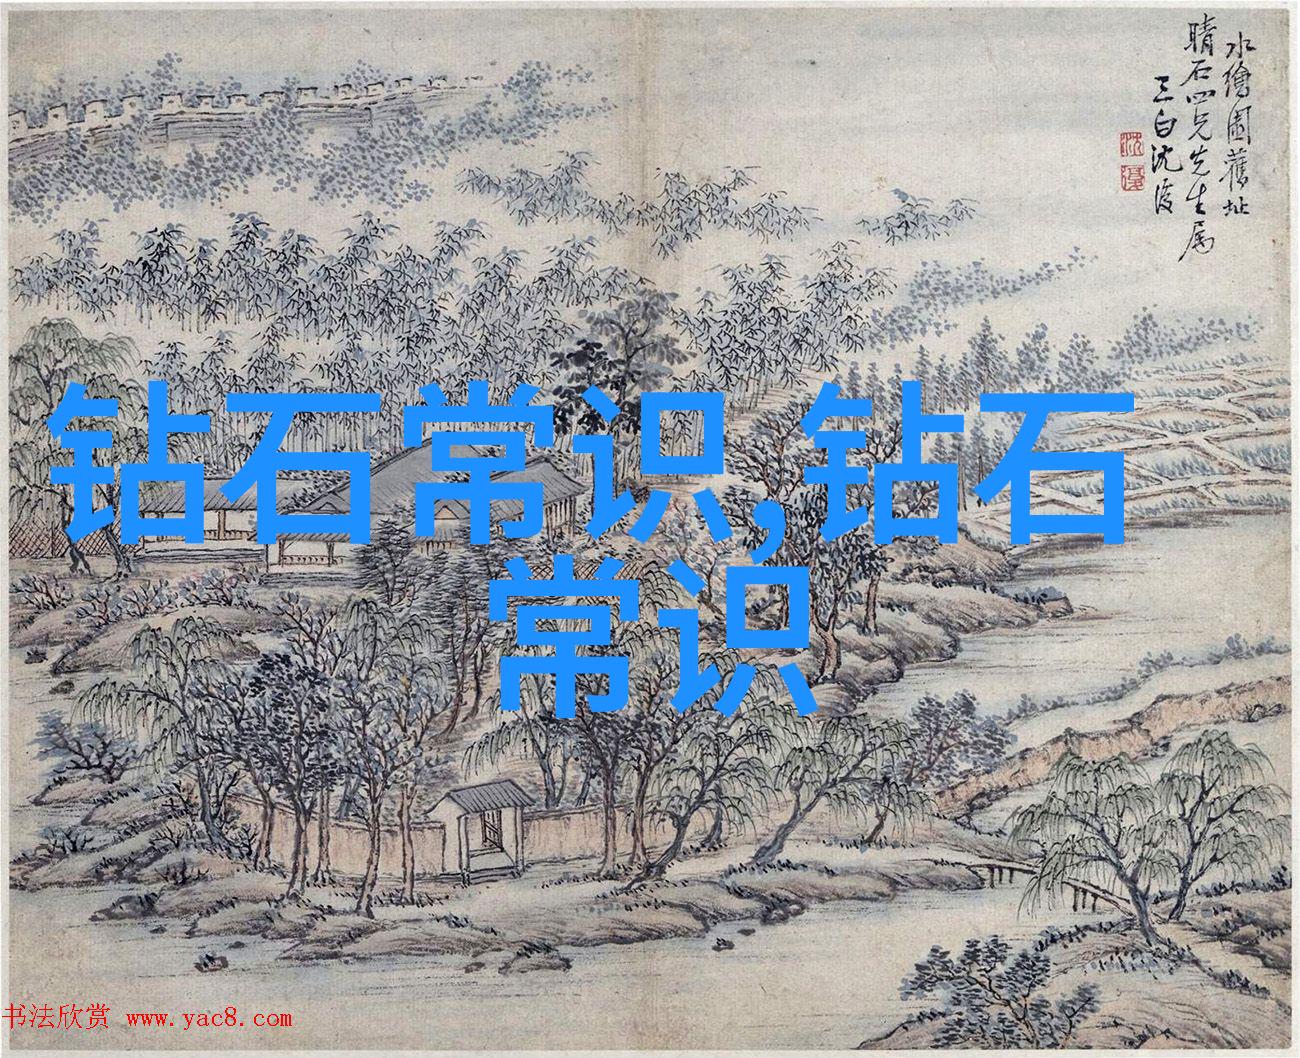 水繪園舊址
晴石四兄先生属
三白沈復
沈
復
钻石常识,钻石
常识
书法欣赏 www.yac8.com